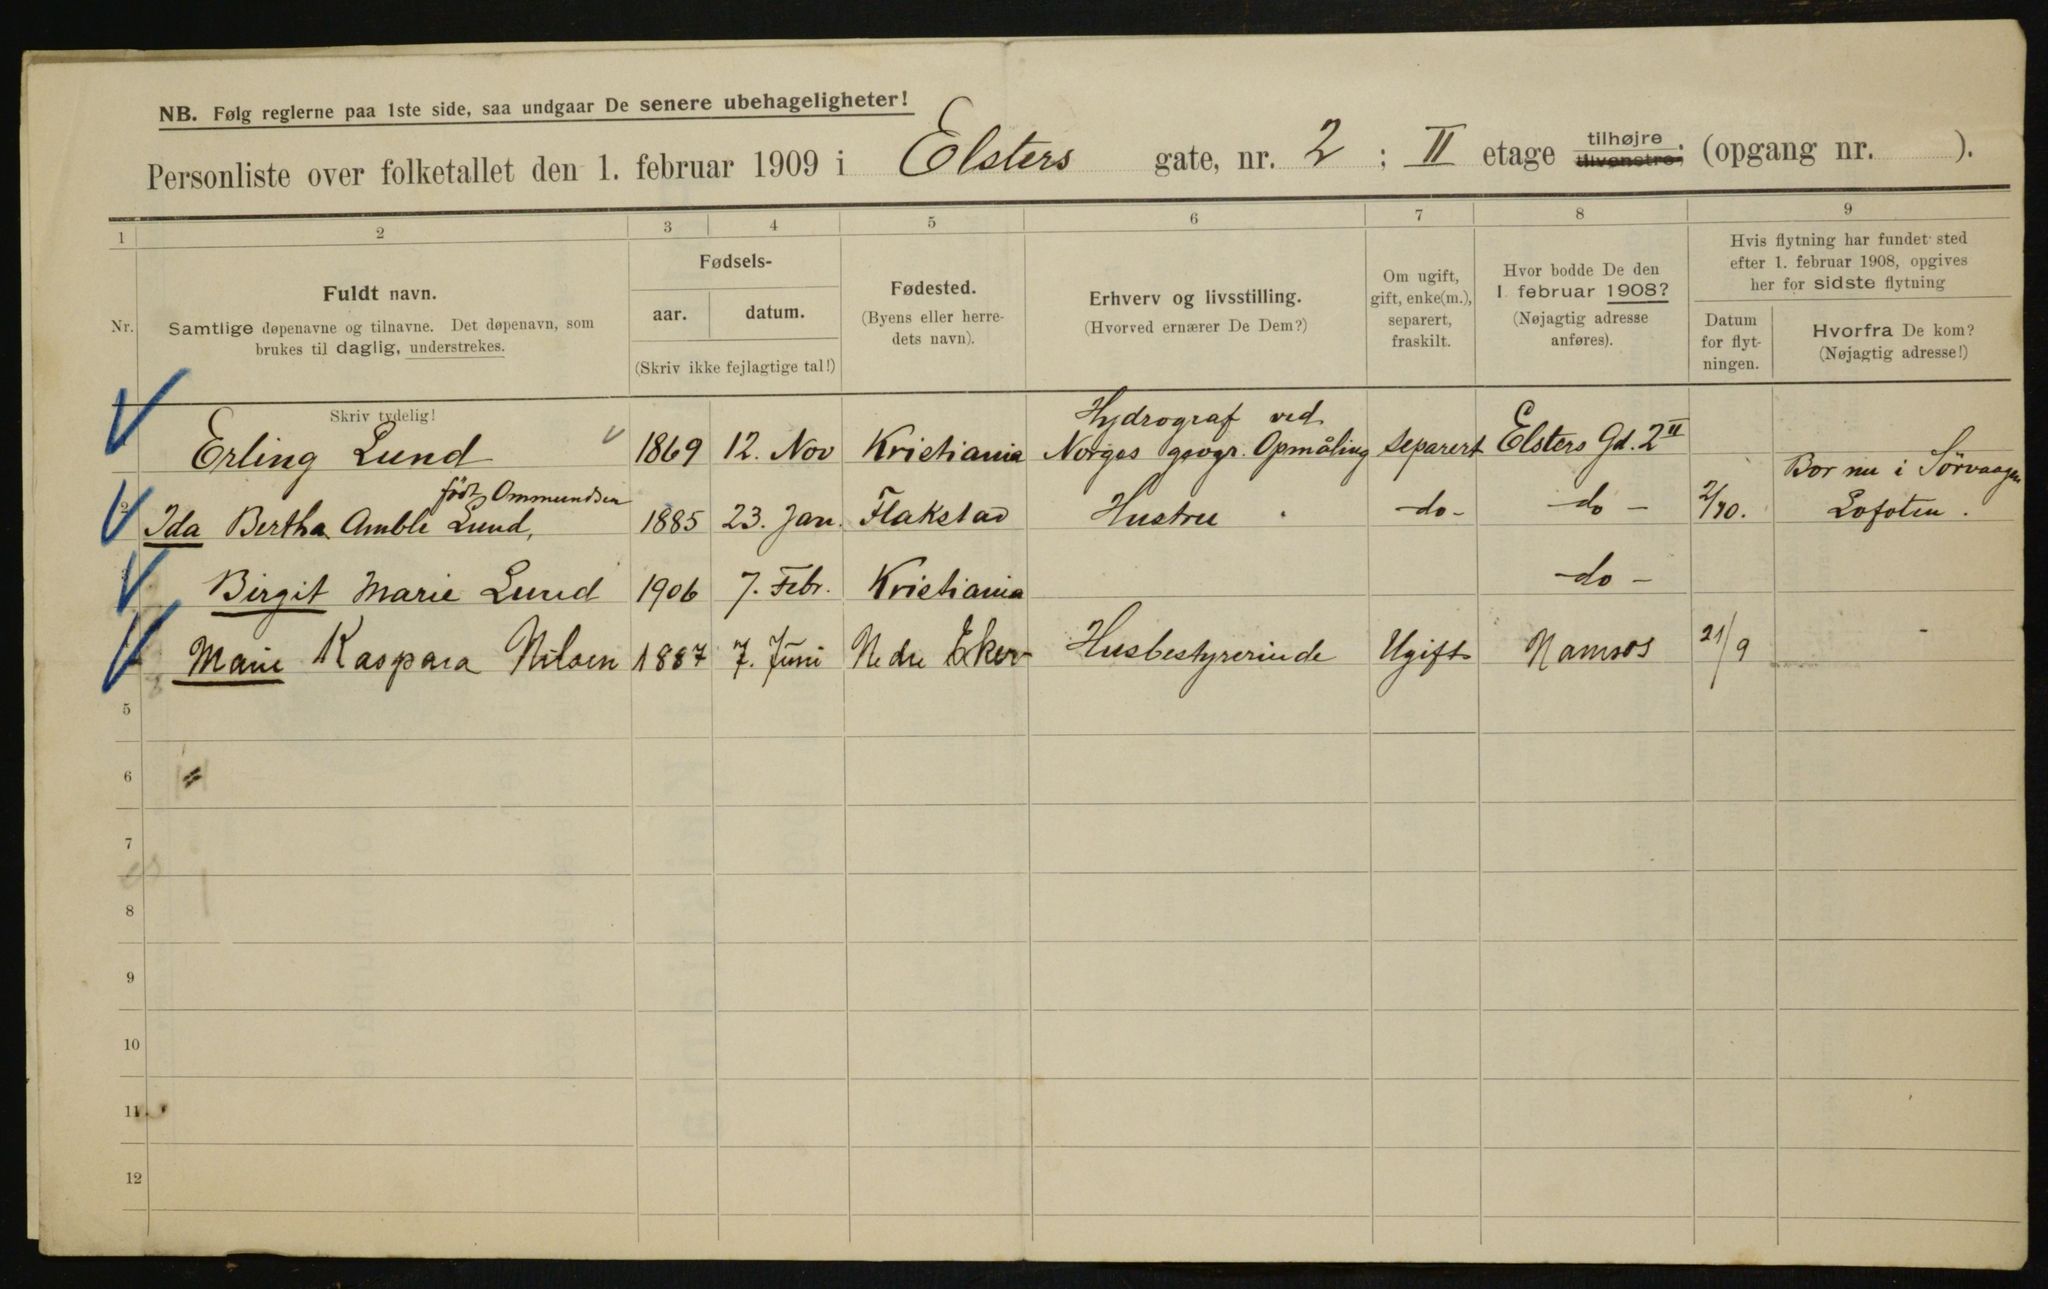 NB. Følg reglerne paa 1ste side, saa undgaar De senere ubehageligheter!
Personliste over folketallet den 1. februar 1909 i Elsters gate, nr. 2 ; II etage tilhøjre. tilvenstre; (opgang nr. ).
1 2 3 4 5 6 7 8 9
Nr.
Fuldt navn.
Samtlige døpenavne og tilnavne. Det døpenavn, som
brukes til daglig, understrekes.
Skriv tydelig!
Fødsels-
aar. datum.
(Skriv ikke fejlagtige tal!)
Fødested.
(Byens eller herre-
dets navn).
Erhverv og livsstilling.
(Hvorved ernærer De Dem?)
Om ugift,
gift, enke(m.),
separert,
fraskilt.
Hvor bodde De den
1 februar 1908?
(Nøjagtig adresse
anføres).
Hvis flytning har fundet sted
efter 1. februar 1908, opgives
her for sidste flytning
Datum
for flyt-
ningen.
Hvorfra De kom?
(Nøjagtig adresse!)
Erling Lund 1869 12. Nov Kristiania Hydrograf ved
Norges geogr. Opmåling separert Elsters Gd. 2 II
2 Ida Bertha Amble Lund, født Ommundsen 1885 23. Jan. Flakstad Hustru do - do - 2/10. Bor nu i Sörvaagen
Lofoten.
3 Birgit Marie Lund 1906 7. Febr. Kristiania do -
Marie Kaspara Nilsen 1887 7. Juni Nedre Eker Husbestyrerinde Ugift Namsos 21/9 -
5
6
7
8
9
10
11
12